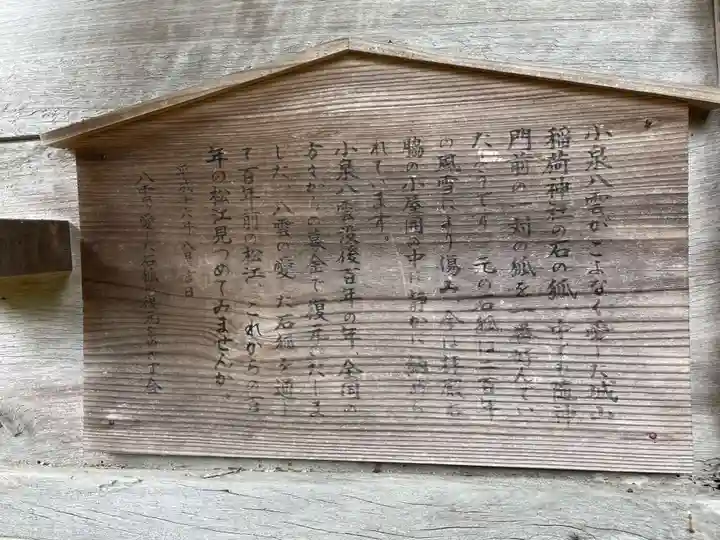 小泉八雲がこよなく愛した城山
稲荷神社の石の狐、中でも随神
門前の一対の狐を一番好んでい
たそうです 元の石狐は二百年
の風雪により傷み、今は拝殿右
脇の小屋囲の中に静かに納めら
れています。
小泉八雲没後百年の年、全国の
方々からの募金で復元いたしま
した 八雲の愛した石狐を通し
て百年前の松江、これからの百
年の松江見つめてみませんか。
平成十六年八月吉日
八雲の愛した石狐を復元する会